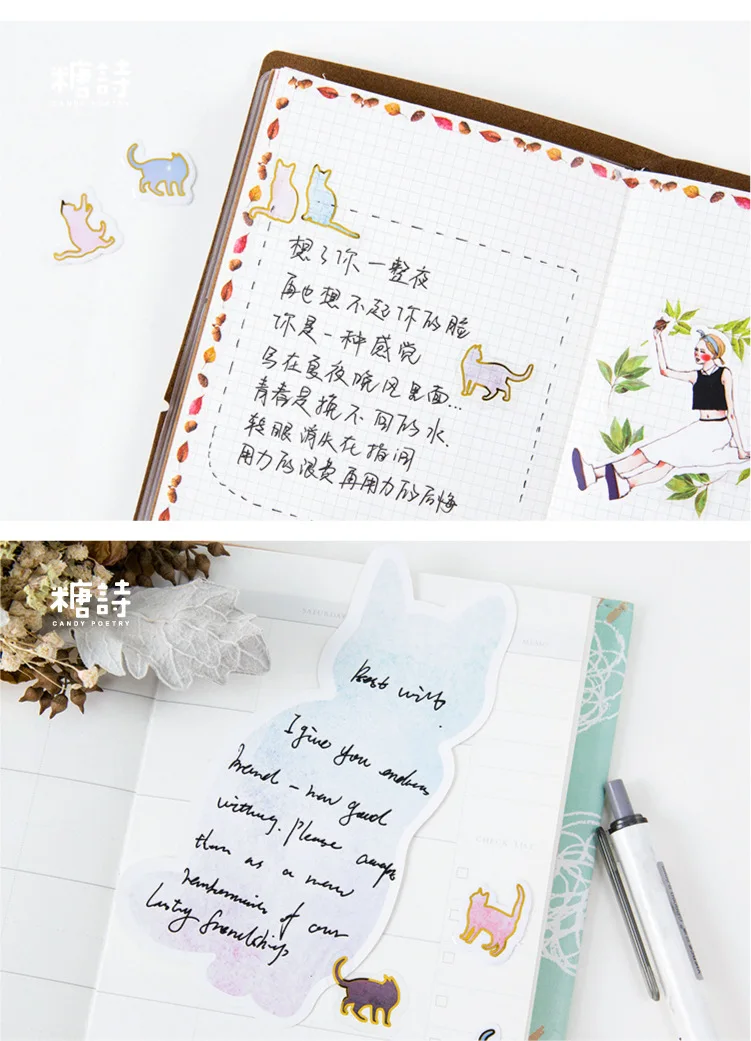 糖詩
CANDY POETRY
想了你一整夜
再也想不起你的脸
你是一种感觉
写在夏夜晚风里面…
青春是挽不回的水
转眼消失在指间
用力的浪费再用力的后悔
糖詩
CANDY POETRY
SATURDAY
MEMO
Best wish
I give you endless
brand-new good
withing. Please accept
them as a new
of our
lasting friendship
CHECK LIST